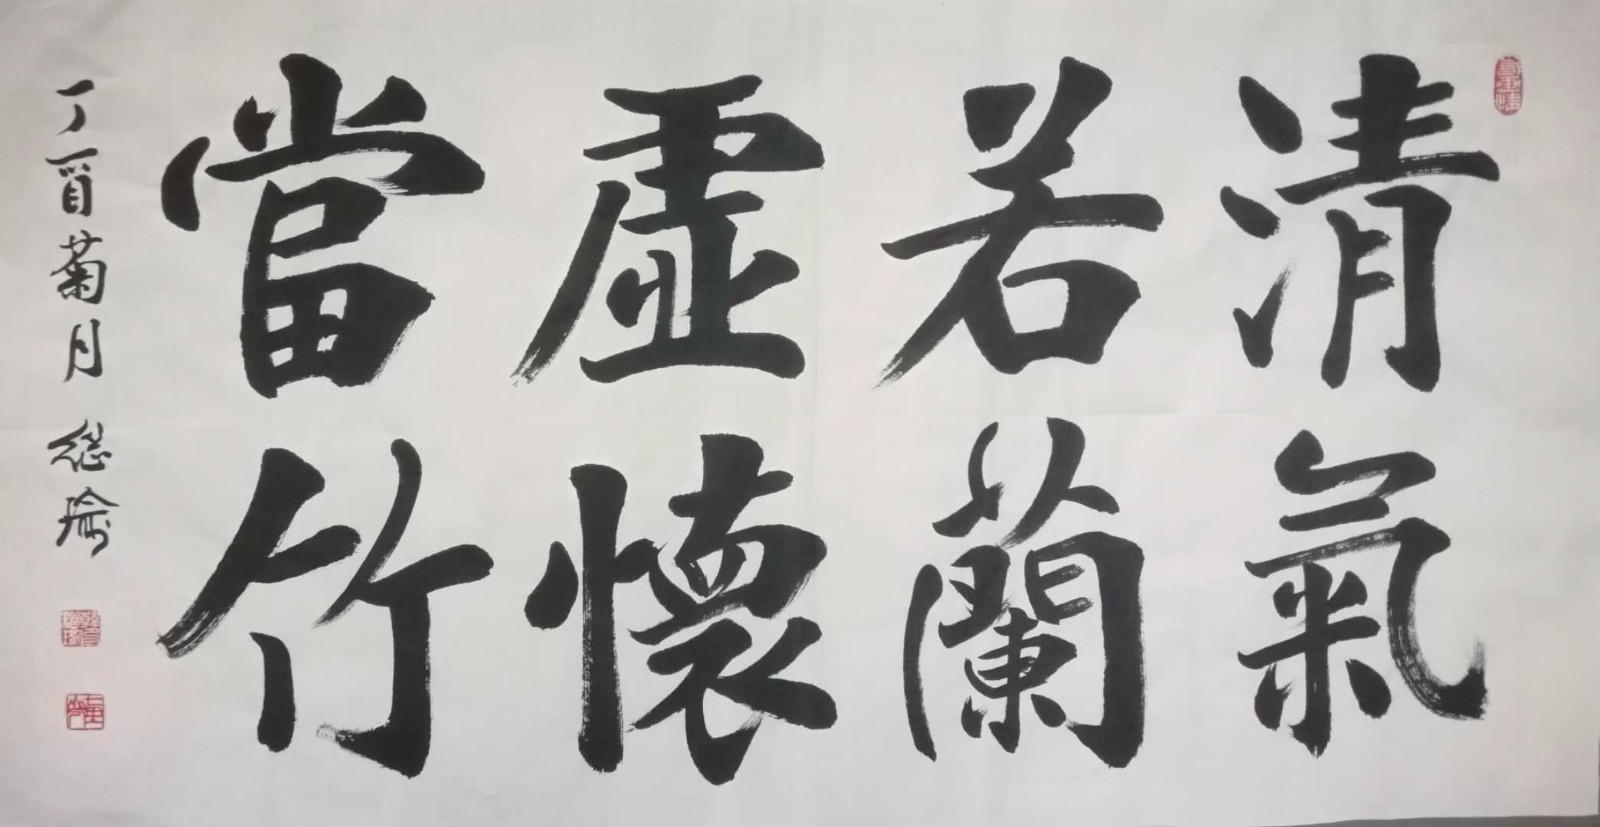 清氣
若蘭
虛懷
當竹
丁酉菊月